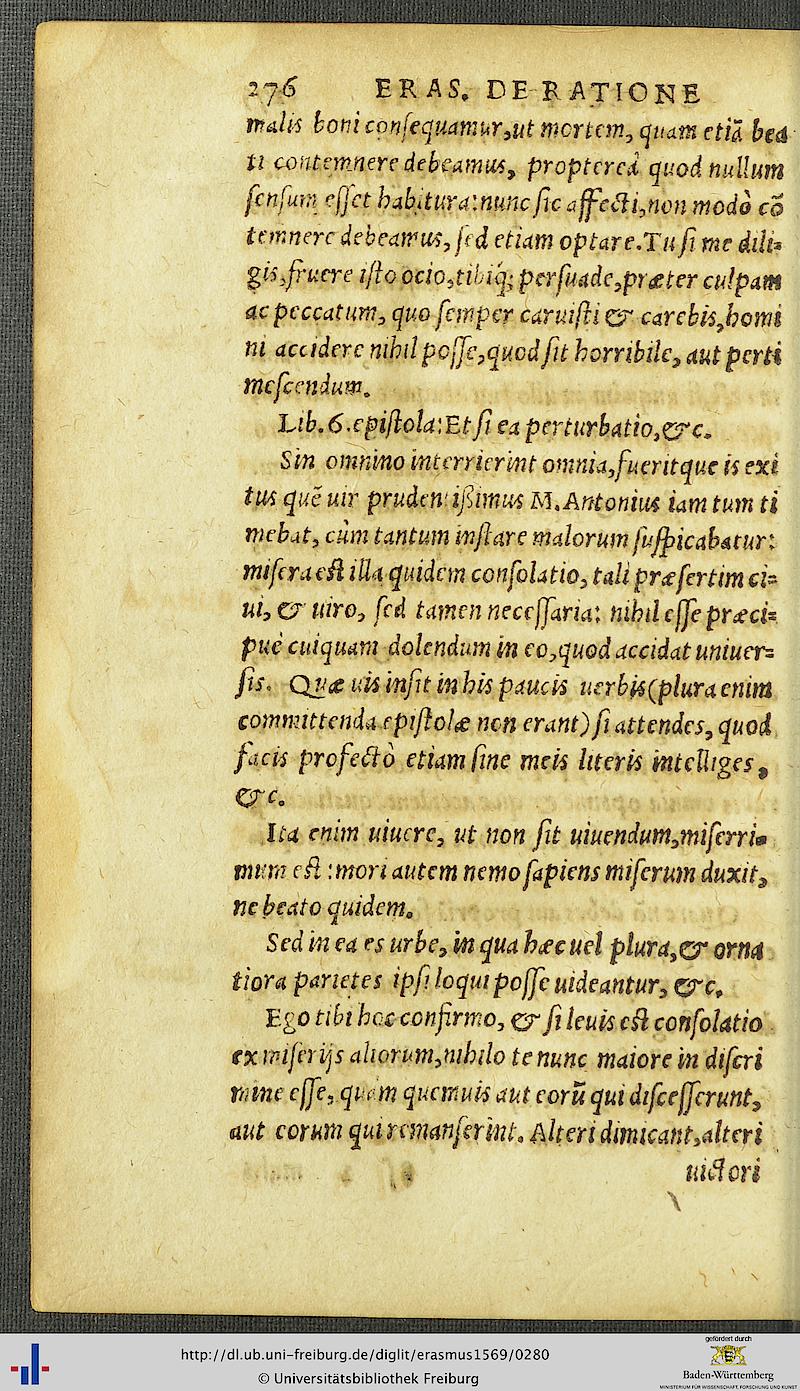 276 ERAS. DE RATIONE
malis boni consequamur,ut mortem, quam etiā bea
ti contemnere debeamus, propterea quod nullum
sensum esset habitura:nunc sic affecti,non modò cō
temnere debeamus, sed etiam optare.Tu si me dili-
gis,fruere isto ocio,tibiq́; persuade,præter culpam
ac peccatum, quo semper caruisti & carebis,homi
ni accidere nihil posse,quod sit horribile, aut perti
mescendum.
Lib.6.epistola:Et si ea perturbatio,&c.
Sin omnino interierint omnia,fueritque is exi
tus quē uir prudentißimus M.Antonius iam tum ti
mebat, cùm tantum instare malorum suspicabatur:
misera est illa quidem consolatio, tali præsertim ci-
ui, & uiro, sed tamen necessaria: nihil esse præci-
puè cuiquam dolendum in eo,quod accidat uniuer-
sis. Quæ uis insit in his paucis uerbis(plura enim
committenda epistolæ non erant)si attendes, quod
facis profectò etiam sine meis literis intelliges,
&c.
Ita enim uiuere, ut non sit uiuendum,miserri-
mum est :mori autem nemo sapiens miserum duxit,
ne beato quidem.
Sed in ea es urbe, in qua hæc uel plura,& orna
tiora parietes ipsi loqui posse uideantur, &c.
Ego tibi hoc confirmo, & si leuis est consolatio
ex miserijs aliorum,nihilo te nunc maiore in discri
mine esse, quam quemuis aut eorū qui discesserunt,
aut eorum qui remanserint. Alteri dimicant,alteri
uictori
http://dl.ub.uni-freiburg.de/diglit/erasmus1569/0280
© Universitätsbibliothek Freiburg
gefördert durch
Baden-Württemberg
MINISTERIUM FÜR WISSENSCHAFT, FORSCHUNG UND KUNST